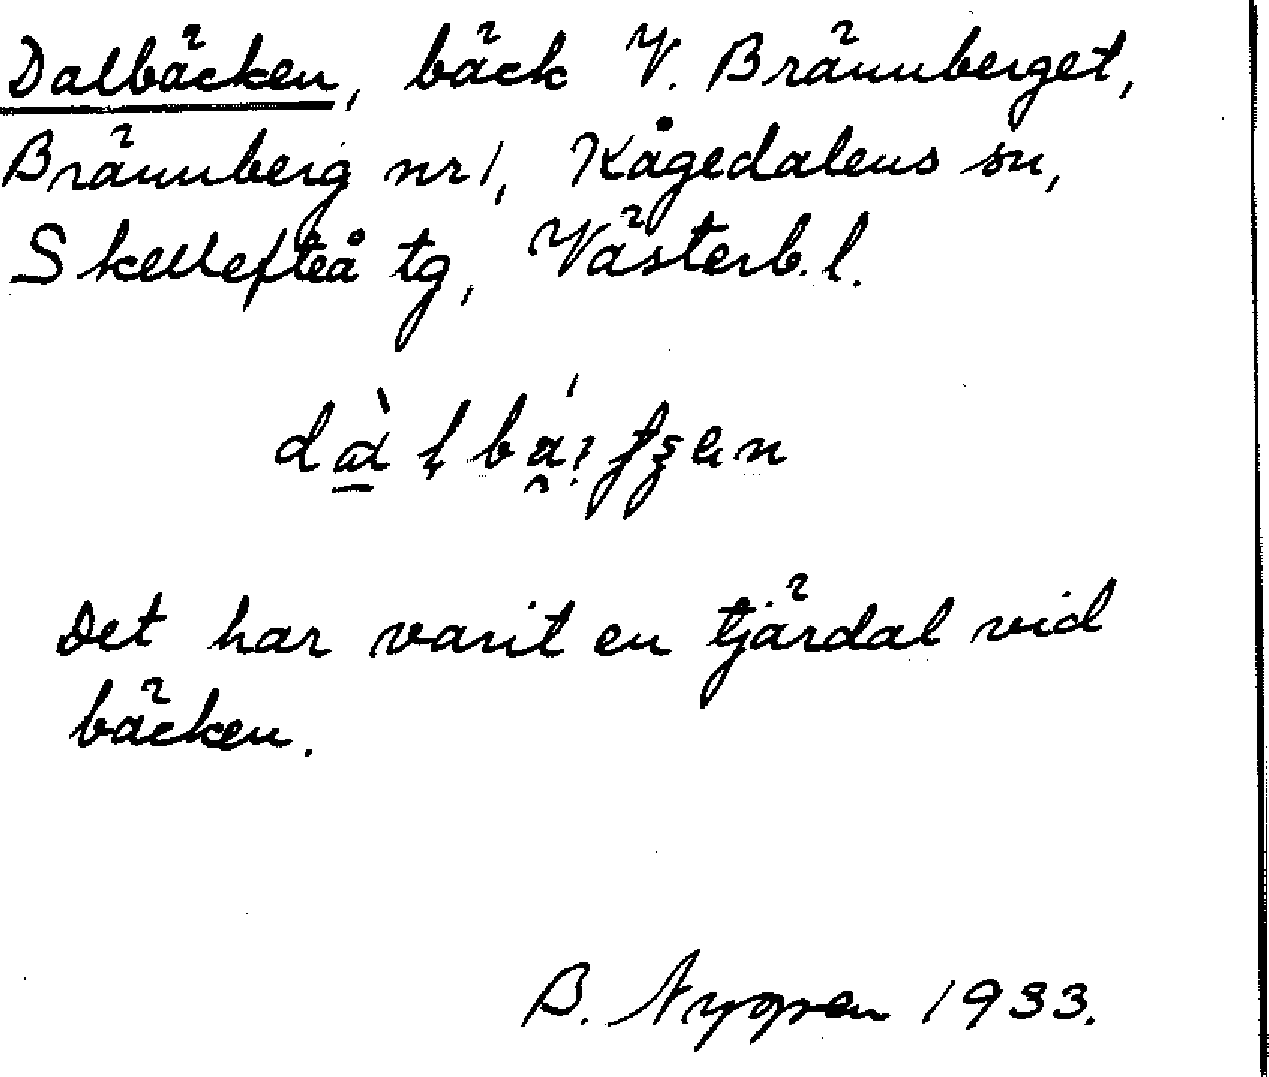 Dalbäcken, bäck V. Brännberget,
Brännberg nr 1, Kågedalens sn,
Skellefteå tg, Västerb. l.
Det har varit en tjärdal vid
bäcken.
B. Nygren 1933.